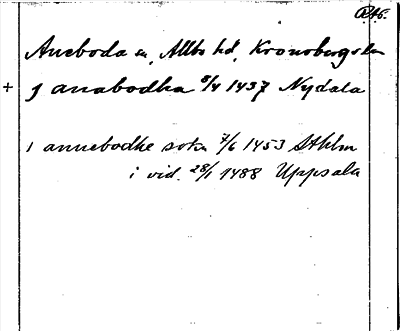 RAÖ.
Aneboda sn, Allbo hd, Kronobergs län
+ J anabodha 8/4 1437 Nydala
i annebodhe sokn 7/6 1453 Sthlm
i vid. 28/1 1488 Uppsala